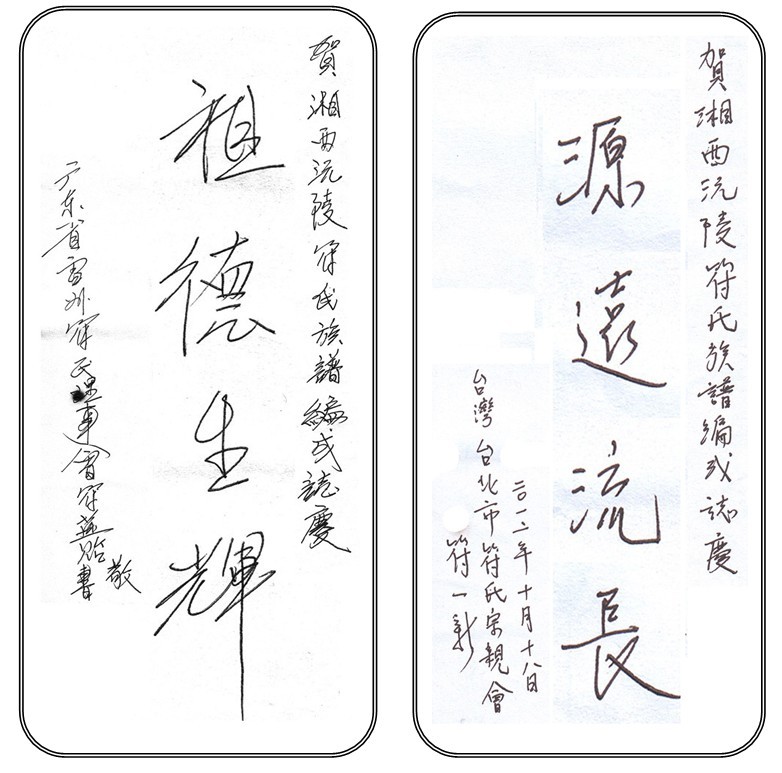 賀湘西沅陵符氏族譜編成誌慶
源遠流長
二〇一二年十月十八日
台灣台北市符氏宗親會
符一新
賀湘西沅陵符氏族譜編成誌慶
祖德生輝
广东省雷州符氏理事會符
敬書